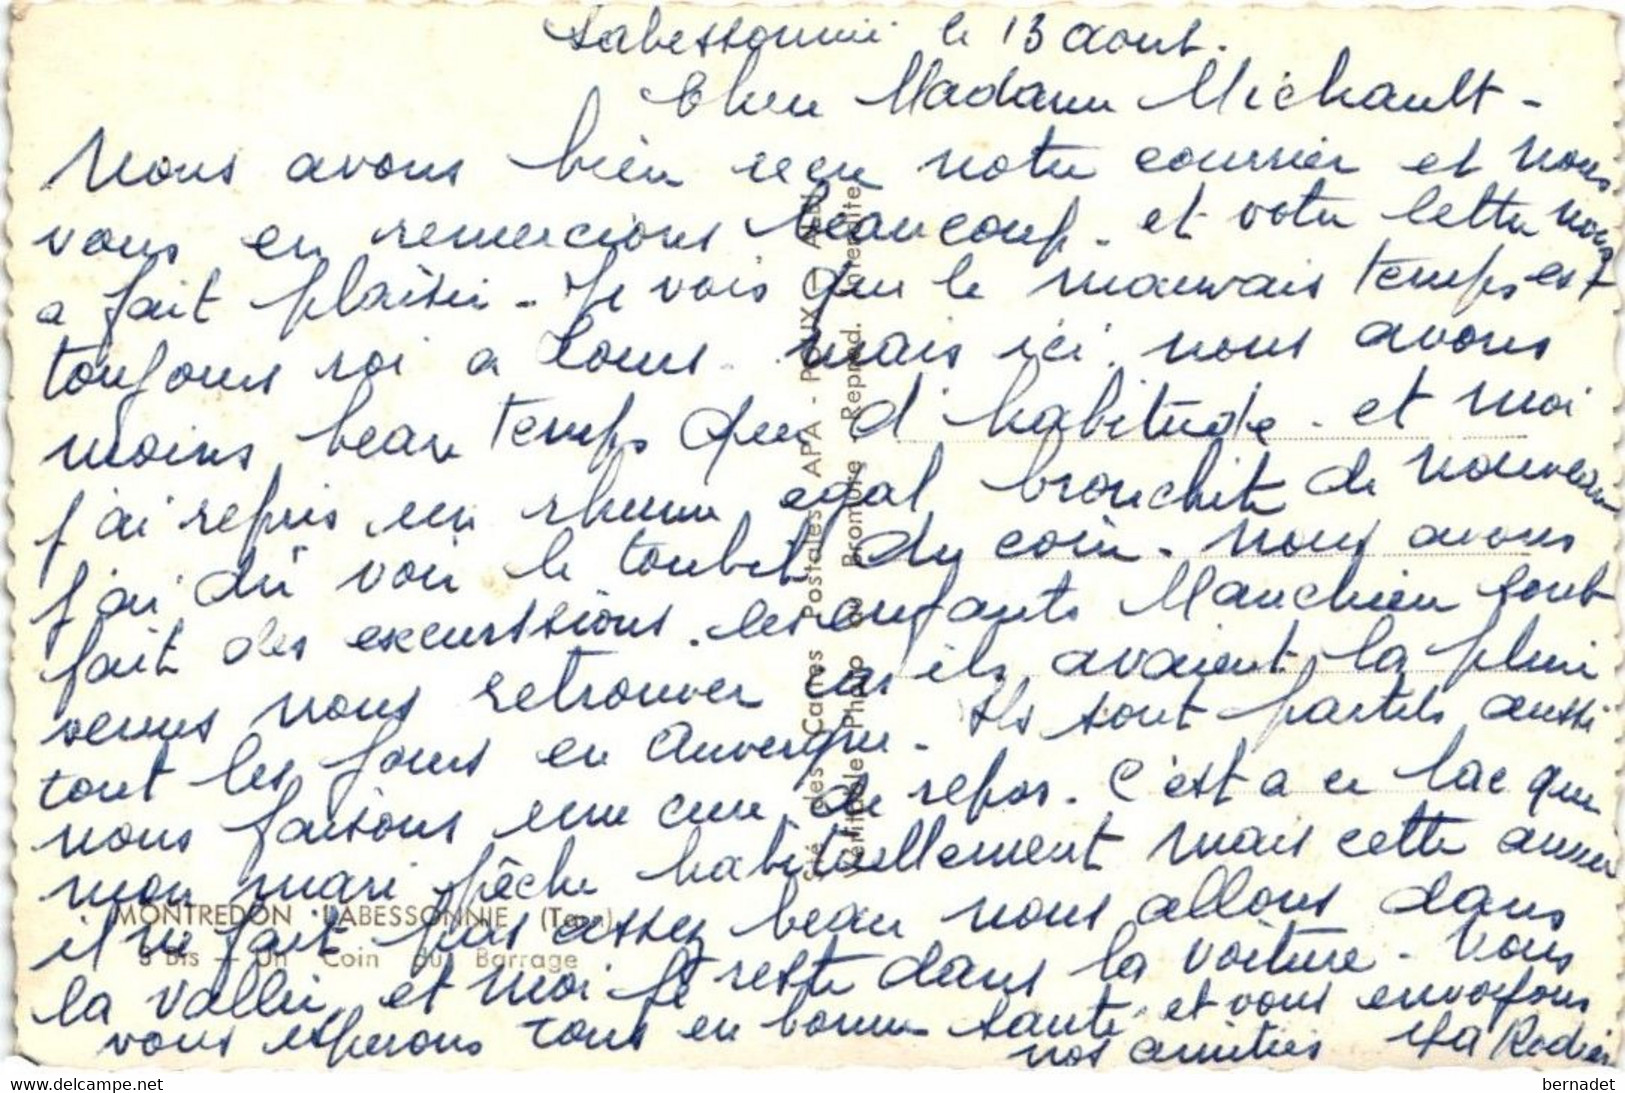 Labessonnié le 13 aout.
Chere Madame Michault -
Nous avons bien reçu notre courrier et nous
vous en remercions beaucoup - et votre lettre nous
a fait plaisir - Je vois que le mauvais temps est
toujours roi a mais ici nous avons
moins beau temps que d'habitude - et moi
j'ai repris un rhume egal bronchite de nouveau
j'ai dû voir le toubib du coin - Nous avons
fait des excurssions. les enfants Manchien sont
venus nous retrouver car ils avaient la pluie
tout les jours en Auvergne - Ils sont partis aussi
nous faisons une cure de repos. C'est a ce lac que
mon mari pêche habituellement mais cette année
il ne fait pas assez beau nous allons dans
la vallée et moi je reste dans la voiture - Nous
vous esperons tous en bonne sante et vous envoyons
nos amitiés Rodier
MONTREDON LABESSONNIE (Tarn)
8 Bis - Un Coin du Barrage
Sté des Cartes Postales APA - POUX - ALBI
Véritable Photo au Bromure - Reprod. Interdite
bernadet
https://www.delcampe.net